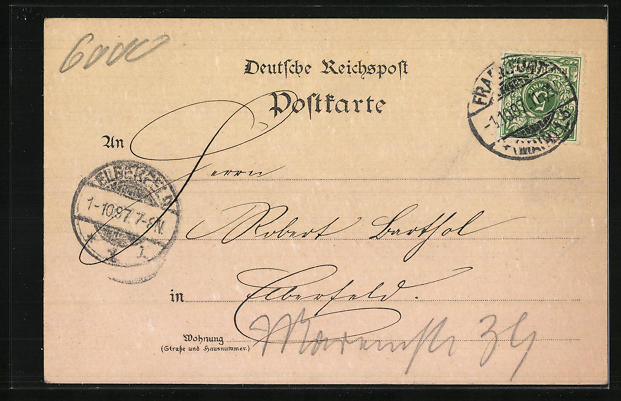 6000
Deutsche Reichspost
Postkarte
An
Herrn
Robert Barthol
in Elberfeld.
Wohnung
(Straße und Hausnummer.)
ELBERFELD
1-10.97. 7-8N.
1
FRANKFURT
5